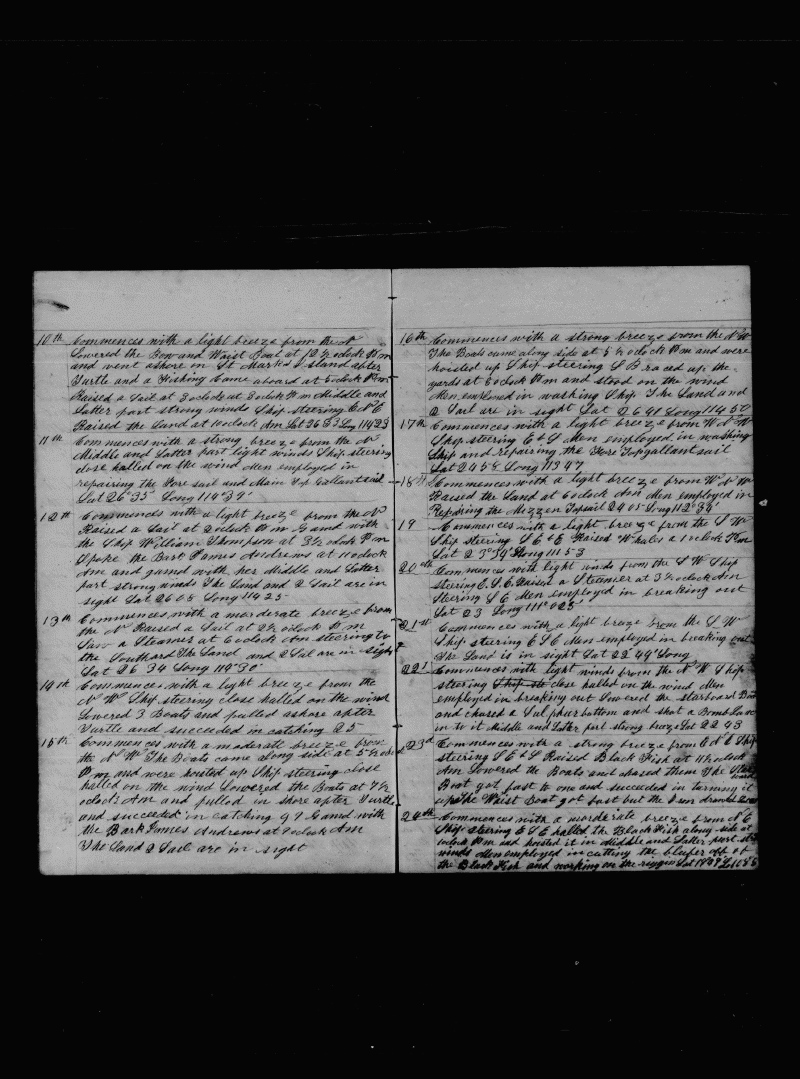 10th Commences with a light breeze from the N
Lowered the Bow and Waist Boat at 12½ oclock Pm
and went ashore on St Marks Island after
Turtle and a Fishing Came aboard at 6 oclock Pm
Raised a Sail at 3 oclock at 3 oclock Pm Middle and
Latter part strong winds Ship steering E N E
Raised the Land at 10 oclock Am Lat 26 53 Long 114 23
11th Commences with a strong breeze from the N
Middle and Latter part light winds Ship steering
close halled on the wind Men employed in
repairing the Fore sail and Main Top Gallant sail
Lat 26°35' Long 114°39'
12th Commences with a light breeze from the N
Raised a Sail at 2 oclock Pm Gamd with
the Ship William Thompson at 3½ oclock Pm
Spoke the Bark James Andrews at 11 oclock
Am and gamd with her Middle and Latter
part strong winds The Land and 2 Sail are in
sight Lat 26 08 Long 114 25
13th Commences with a morderate breeze from
the N Raised a Sail at 2½ oclock Pm
Saw a Steamer at 6 oclock Am steering to
the Southard The Land and 2 Sail are in sight
Lat 26 34 Long 114°30'
14th Commences with a light breeze from the
N W Ship steering close halled on the wind
Lowered 3 Boats and pulled ashore after
Turtle and succeeded in catching 25
15th Commences with a moderate breeze from
the N W The Boats came along side at 5½ oclock
Pm and were hoisted up Ship steering close
halled on the wind Lowered the Boats at 7½
oclock Am and pulled in shore after Turtle
and succeeded in catching 97 Gamd with
the Bark James Andrews at 9 oclock Am
The Land 2 Sail are in sight
16th Commences with a strong breeze from the N W
The Boats came along side at 5½ oclock Pm and were
hoisted up Ship steering S Braced up the
yards at 6 oclock Pm and stood on the wind
Men employed in washing Ship The Land and
2 Sail are in sight Lat 26 41 Long 114 50
17th Commences with a light breeze from W N W
Ship steering E & S Men employed in washing
Ship and repairing the Fore Topgallant sail
Lat 24 58 Long 113 47
18th Commences with a light breeze from W N W
Raised the Land at 6 oclock Am Men employed in
Repairing the Mizzen Topsail 24 05 Long 112°39'
19 Commences with a light breeze from the S W
Ship steering S E & E Raised Whales a 1 oclock Pm
Lat 23°39' Long 111 53
20th Commences with light winds from the S W Ship
steering E.S.E. Raised a Steamer at 3½ oclock Am
Steering S E Men employed in breaking out
Lat 23 Long 111°025'
21st Commences with a light breeze from the S W
Ship steering E S E Men employed in breaking out
The Land is in sight Lat 22°49' Long
22 Commences with light winds from the N W Ship
steering close halled on the wind Men
employed in breaking out Lowered the starboard Boat
and chased a Sulphur bottom and shot a Bomb Lance
in to it Middle and Latter part strong breeze Lat 22 43
23d Commences with a strong breeze from E N E Ship
steering S E & S Raised Black Fish at 11½ oclock
Am Lowered the Boats and chased them The
Boat got fast to one and succeeded in turning it
up the Waist Boat got fast but the Iron
24th Commences with a morderate breeze from N E
Ship steering E S E halled the Black Fish along side at
oclock Pm and hoisted it in Middle and Latter part
winds Men employed in cutting the bluber off of
the Black Fish and working on the riggin Lat